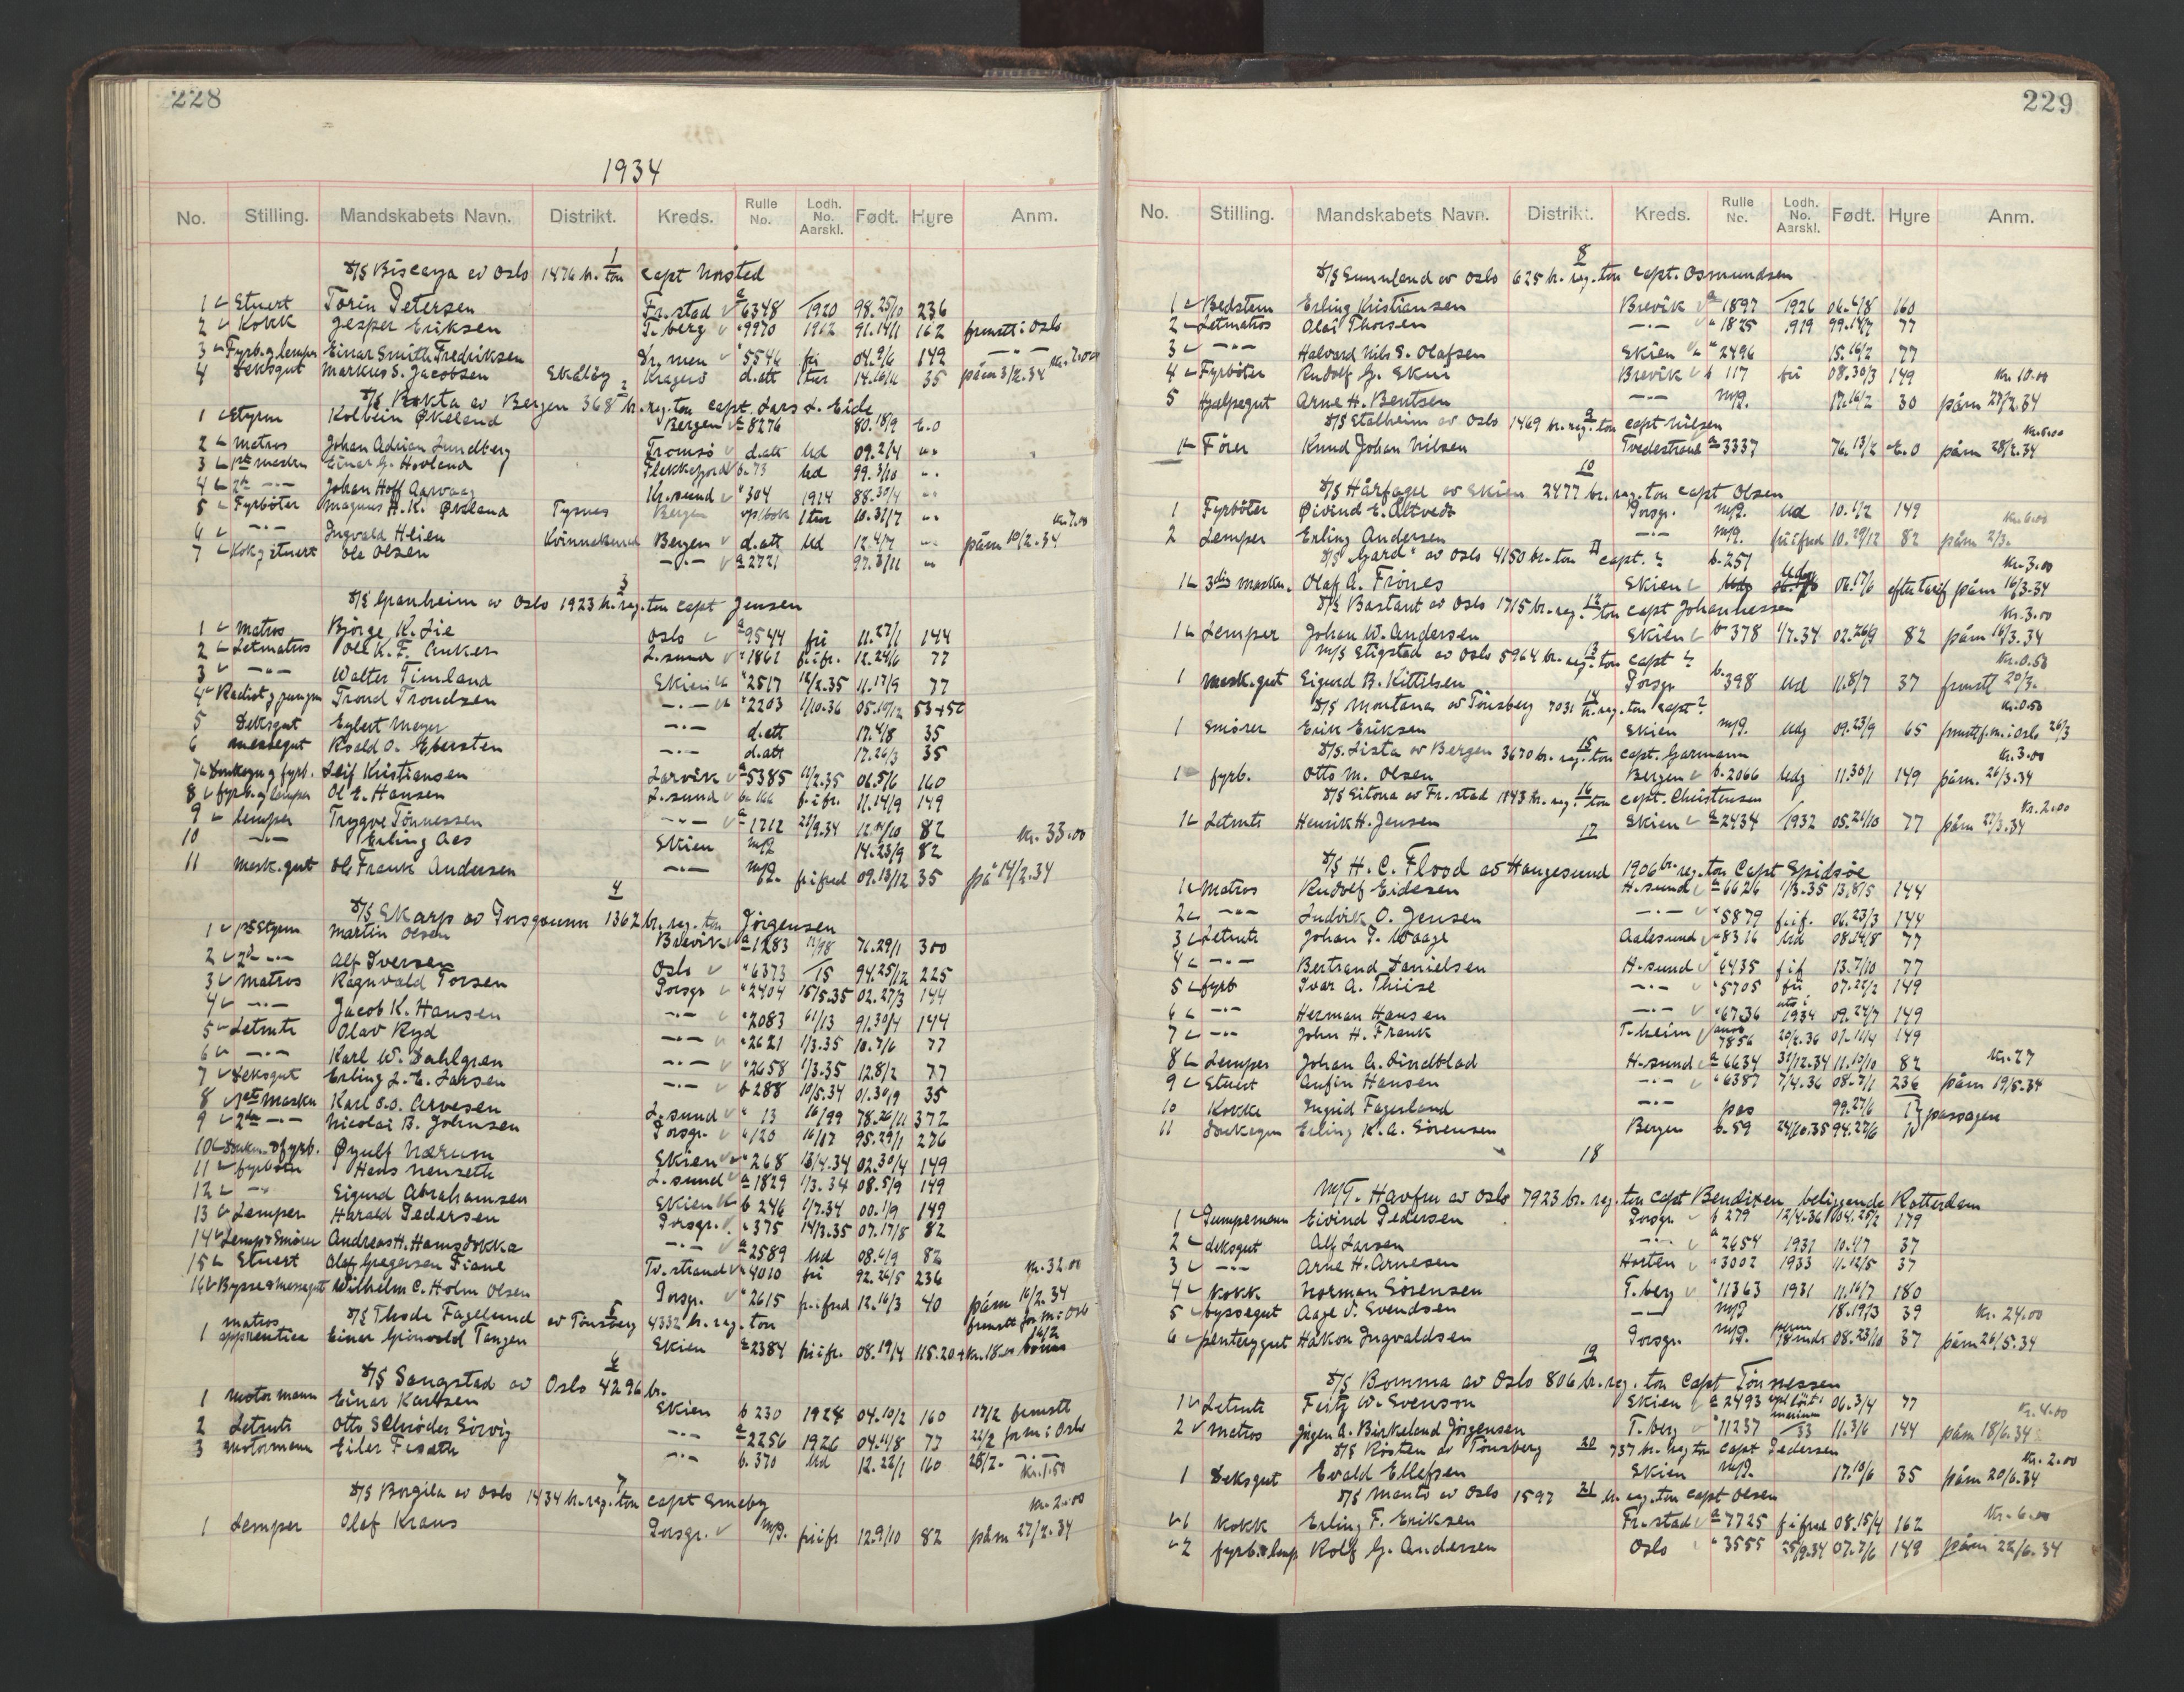 228
1934
No. Stilling. Mandskabets Navn. Distrikt. Kreds. Rulle No. Lodh. No. Aarskl. Født. Hyre Anm.
1
D/S Biscaya av Oslo 1476 br. ton capt Norsted
1 Stuert Torin Petersen Fr.stad a 6348 1920 98.25/10 236
2 Kokk Jesper Eriksen T.berg " 9970 1912 91.14/11 162 frmstt i Oslo
3 Fyrb. og lemper Einar Smith Fredriksen Dr.men " 5546 fri 04.9/6 149 — " —
4 Deksgut Markus S. Jacobsen Skåtøy Kragerø d.att 1 tur 14.16/11 35 påm 3/2.34 Kr. 7.00
2
D/S Bokta av Bergen 368 br. reg. ton capt. Lars L. Eide
1 Styrm Kolbein Økeland Bergen a 8276 80.18/9 t.o
2 Matros Johan Adrian Lundberg Tromsø d.att Ud 09.2/4 "
3 1ste maskn Einar G. Hovland Flekkefjord b.73 Ud 99.3/10 "
4 2n —"— Johan Hoff Aarvaag Kr.sund " 304 1914 88.30/4 "
5 Fyrbøter Magnus H.K. Økeland Tysnes Bergen opl.bok 1 tur 10.31/7 "
6 —"— Ingvald Heien Kvinneherred Bergen d.att Ud 12.4/7 " Kr. 7.00
7 Kok og stuert Ole Olsen —"— a 2721 97.3/11 " påm 10/2.34
3
D/S Granheim av Oslo 1923 br. reg. ton capt Jensen
1 Matros Bjørge K. Lie Oslo a 9544 fri 11.27/1 144
2 Letmatros Ole K. F. Anker L.sund " 1861 fri fr. 12.24/6 77
3 —"— Walter Timland Skien " 2517 12/2.35 11.17/9 77
4 Radist og jungm Trond Trondsen —"— " 2203 1/10.36 05.19/12 53+50
5 Deksgut Eylert Meyer —"— d.att 17.4/8 35
6 Messegut Roald O. Ebersten —"— d.att 17.26/3 35
7 Donkeym og fyrb. Leif Kristiansen Larvik a 5385 11/2.35 06.5/6 160
8 fyrb. og lemper Ol E. Hansen L.sund b. 166 fri fr. 11.14/9 149
9 lemper Trygve Tønnessen —"— a 1712 21/9.34 12.14/10 82
10 —"— Erling Aas Skien m/p 14.23/9 82 Kr. 33.00
11 Mask.gut Ole Frank Andersen —"— m/p. fri fred 09.13/12 35 på 14/2.34
4
D/S Skarp av Porsgrunn 1362 br. reg. ton Jørgensen
1 1ste Styrm Martin Olsen Brevik a 1283 11/98 76.29/1 300
2 2n —"— Alf Iversen Oslo " 6373 /15 94.25/12 225
3 Matros Ragnvald Torsen Porsgr " 2404 15/5.35 02.27/3 144
4 —"— Jacob K. Hansen —"— " 2083 61/13 91.30/4 144
5 Letmtr Olav Ryd —"— " 2621 1/3.35 10.7/6 77
6 —"— Karl W. Dahlgren —"— " 2658 1/3.35 12.8/2 77
7 Deksgut Erling L. E. Larsen —"— b 288 10/5.34 01.30/9 35
8 1ste Maskn Karl O.O. Arvesen L.sund " 13 16/99 78.26/11 372
9 2den —"— Nicolai B. Johnsen Porsgr. " 120 16/17 95.29/1 276
10 Donkm. og fyrb. Øyulf Nærum Skien " 268 13/4.34 02.30/4 149
11 fyrbøter Hans Nenseth L.sund a 1829 1/3.34 08.5/9 149
12 —"— Sigurd Abrahamsen Skien b 246 1/7.34 00.1/9 149
13 Lemper Harald Pedersen Porsgr. " 375 14/3.35 07.17/8 82
14 Lemp & Smører Andreas H. Hamsdokka —"— a 2589 Ud 08.6/9 82
15 Stuert Olaf Gregersen Fiane Tv.strand " 4010 fri 92.26/5 236 Kr. 32.00
16 Bysse & messegut Wilhelm C. Holm Olsen Porsgr. " 2615 fri fred 12.16/3 40 påm 16/2.34
5
D/S Thode Fagelund av Tønsberg 4332 br. reg. ton frmstt for m i Oslo
1 matros apprentice Einar Grinvold Tangen Skien a 2384 fri fr. 08.19/4 115.20+kr. 18.00 bonus 16/2
6
D/S Sangstad av Oslo 4296 br.
1 Motormann Einar Karlsen Skien b 230 1924 04.10/2 160 17/2 frmstt
2 Letmtr Otto Schrøder Sørvig —"— a 2256 1926 04.11/8 77 22/2 for m i Oslo
3 Motormann Eiler Fisæth —"— b. 370 Ud 12.22/1 160 28/2. —"—
Kr. 1.50
7
D/S Borgila av Oslo 1434 br. reg. ton capt Smeby Kr. 2.00
1 Lemper Olaf Kraus Porsgr. m/p. fri fr 12.9/10 82 påm 27/2.34
229
No. Stilling. Mandskabets Navn. Distrikt. Kreds. Rulle No. Lodh. No. Aarskl. Født. Hyre Anm.
8
D/S Sunnland av Oslo 625 br. reg. ton capt. Osmundsen
1 Bedstem Erling Kristiansen Brevik a 1897 1926 06.6/8 160
2 Letmatros Olai Thorsen —"— " 1825 1919 99.14/7 77
3 —"— Halvard Nils S. Olafsen Skien " 2496 15.16/2 77
4 Fyrbøter Rudolf G. Skur Brevik b 117 fri 08.30/3 149 Kr. 10.00
5 Hjælpegut Arne H. Bentsen —"— m/p. 17.16/2 30 påm 27/2.34
9
D/S Stalheim av Oslo 1469 br. reg. ton capt Nilsen
1 Fører Knud Johan Nilsen Tvedestrand a 3337 76.13/2 t.o påm 28/2.34
10
D/S Hårfager av Skien 2477 br. reg. ton capt Olsen
1 Fyrbøter Øivind E. Altvedt Porsgr. m/p. Ud 10.1/2 149 Kr. 6.00
2 Lemper Erling Andersen —"— m/p. fri i fred 10.29/12 82 påm 2/3.
11
D/S "Gard" av Oslo 4150 br. ton capt. ? b. 251 Kr. 3.00
1 3die maskn. Olaf A. Frønes Skien Udg 06.17/6 efter tarif påm 16/3.34
12
D/S Bastant av Oslo 1715 br. reg. ton capt Johannessen Kr. 3.00
1 Lemper Johan W. Andersen Skien b 378 1/7.34 02.26/9 82 påm 16/3.34
13
M/S Stigstad av Oslo 5964 br. reg. ton capt ? Kr. 0.50
1 Mask.gut Sigurd B. Kittilsen Porsgr b. 398 Ud 11.8/7 37 frmstt 20/3.
14
D/S Montana av Tønsberg 7031 br. reg. ton capt ? Kr. 0.50
1 Smører Erik Eriksen Skien m/p. Udg 09.23/9 65 frmstt f. m. i Oslo 26/3
15
D/S. Lista av Bergen 3670 br. reg. ton capt. Garmann Kr. 3.00
1 fyrb. Otto M. Olsen Bergen b. 2066 Udg 11.30/1 149 påm. 26/3.34
16
D/S Sitona av Fr.stad 1143 br. reg. ton capt. Christensen Kr. 2.00
1 Letmtr Henrik H. Jensen Skien a 2434 1932 05.24/10 77 påm 27/3.34
17
D/S H. C. Flood av Haugesund 1906 br. reg. ton Capt Spidsøe
1 Matros Rudolf Eidesen H.sund a 6626 1/3.35 13.8/5 144
2 —"— Ludvik O. Jensen —"— " 5879 fri f. 06.23/3 144
3 Letmtr Johan P. Waage Aalesund " 8316 Ud 08.14/8 77
4 —"— Bertrand Danielsen H.sund " 6435 fri f 13.7/10 77
5 fyrb Ivar A. Thiise —"— " 5705 fri 07.22/2 149
6 —"— Herman Hansen —"— " 6736 uts i 1934 09.24/7 149
7 —"— John H. Frank T.heim 7856 20/2.36 07.11/4 149
8 Lemper Johan A. Lindblad H.sund a 6634 31/12.34 11.19/10 82 Kr. 27
9 Stuert Anfin Hansen —"— " 6387 7/4.36 08.7/1 236 påm 19/5.34
10 Kokke Ingrid Fagerland —"— pas 99.27/6 passager
11 Donkeym Erling K. A. Sørensen Bergen b. 59 24/10.35 94.27/6
18
M/T. Havfru av Oslo 7923 br. reg. ton capt Bendixen beliggende Rotterdam
1 Pumpemann Eivind Pedersen Porsgr. b 279 12/4.36 04.25/2 179
2 deksgut Alf Larsen —"— a 2654 1931 10.4/7 37
3 —"— Arne H. Arnesen Horten " 3002 1933 11.12/5 37
4 Kokk Norman Sørensen T.berg " 11363 1931 11.16/7 180
5 byssegut Aage V. Svendsen —"— m/p 18.19/3 39 Kr. 24.00
6 pentrygut Håkon Ingvaldsen Porsgr. m/p. perm 18 mdr 08.23/10 37 påm 26/5.34
19
D/S Bomma av Oslo 806 br. reg. ton Capt Tønnessen
1 Letmtr Fritz W. Svenson Skien a 2493 opl tät i marinen 06.3/4 77 Kr. 4.00
2 Matros Jørgen A. Birkeland Jørgensen T.berg " 11237 /33 11.3/6 144 påm 18/6.34
20
D/S Rosten av Tønsberg 737 br. reg ton capt Pedersen Kr. 2.00
1 Deksgut Evald Ellefsen Skien m/p. 17.10/6 35 påm 20/6.34
21
D/S Mento av Oslo 1597 br. reg. ton capt Olsen
1 Kokk Erling F. Eriksen Fr.stad a 7725 f i fred 08.15/4 162 Kr. 6.00
2 fyrb. & lemp Rolf G. Andersen Oslo " 3555 25/9.34 07.7/6 149 påm 22/6.34